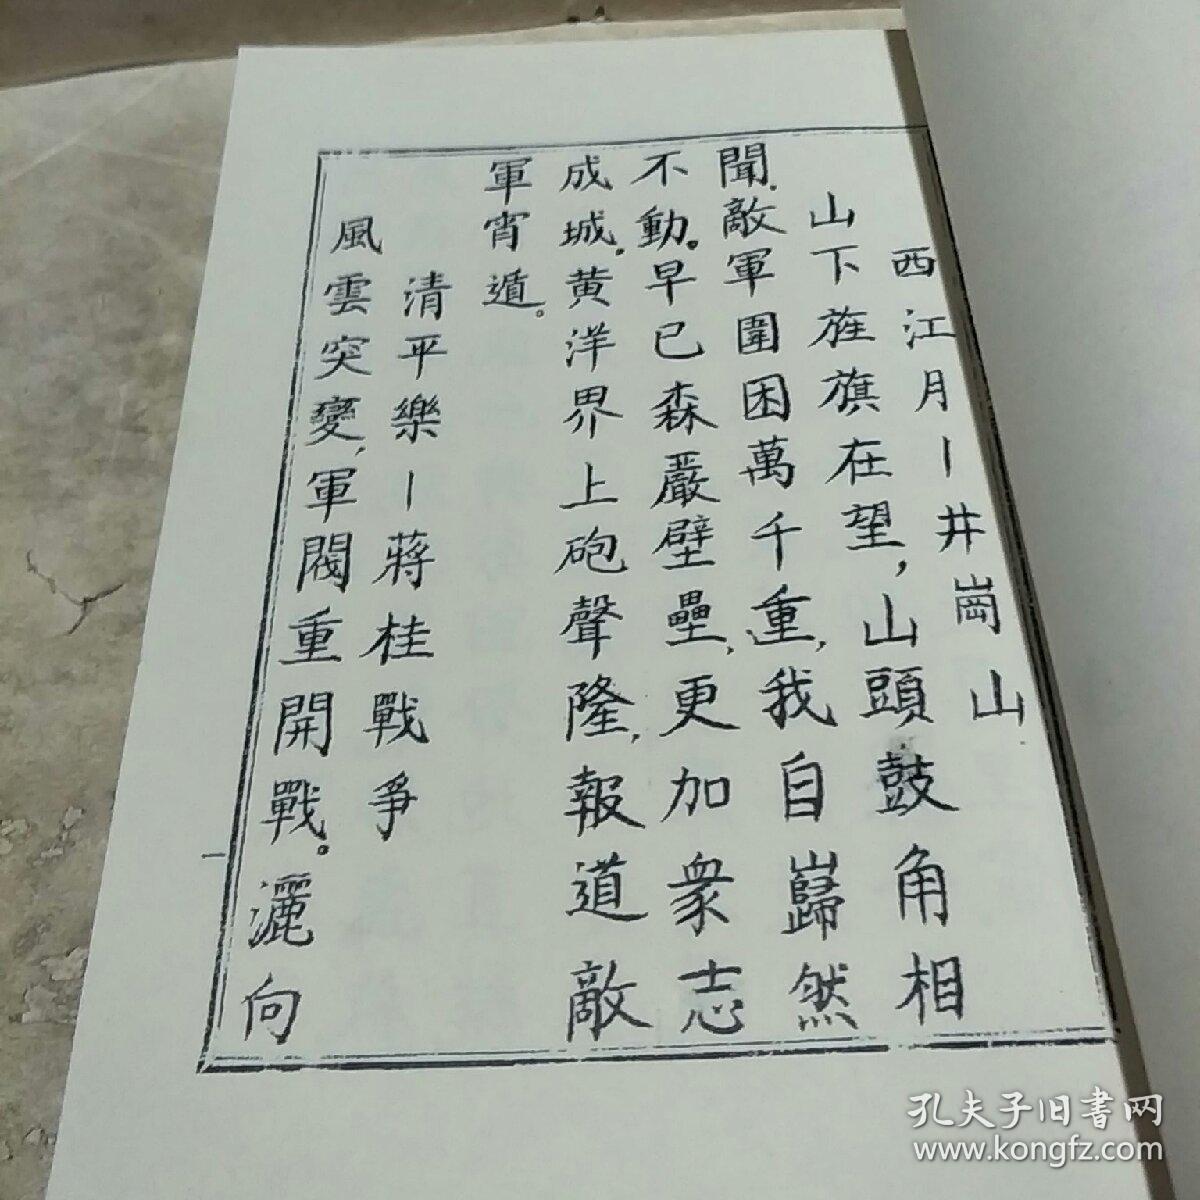 西江月—井崗山
山下旌旗在望，山頭鼓角相
聞，敵軍圍困萬千重，我自巋然
不動。早已森嚴壁壘，更加衆志
成城。黄洋界上砲聲隆，報道敵
軍宵遁。
清平樂—蔣桂戰爭
風雲突變，軍閥重開戰。灑向
孔夫子旧書网
www.kongfz.com